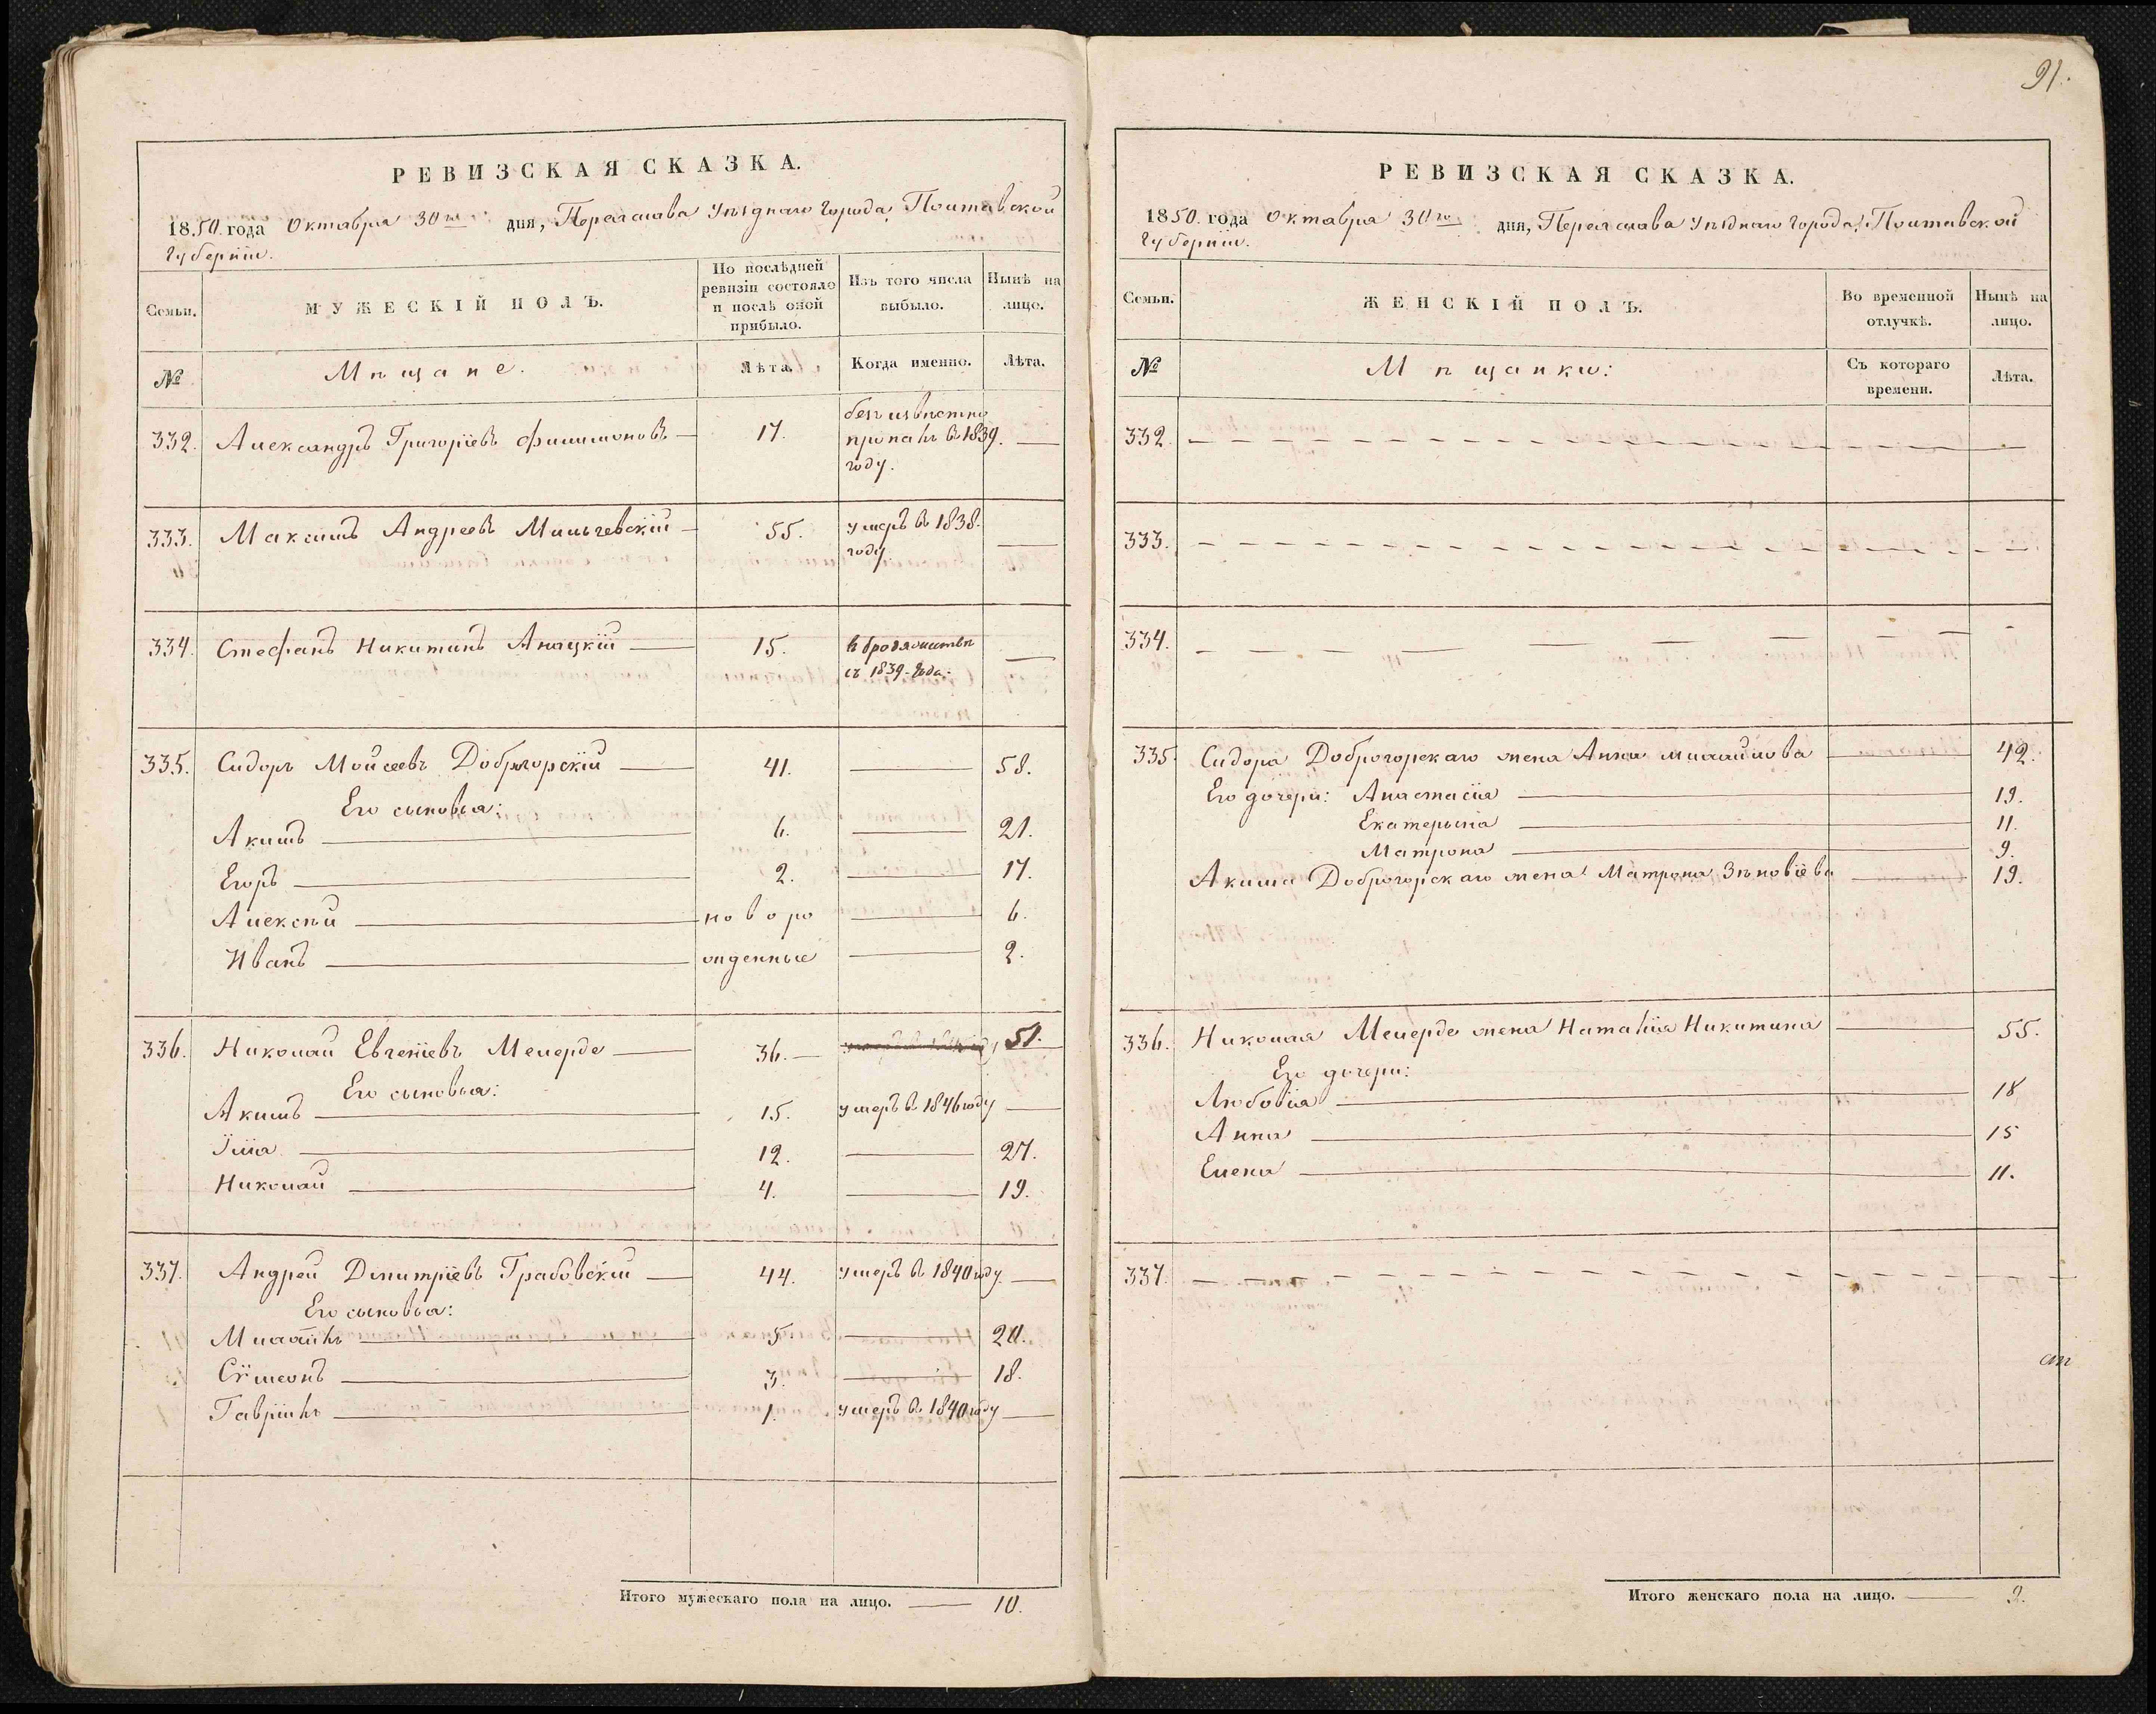 РЕВИЗСКАЯ СКАЗКА.
1850. года Октября 30го дня, Переяслава Уѣзднаго города, Полтавской
Губерніи.
Семьи.
МУЖЕСКІЙ ПОЛЪ.
По послѣдней ревизіи состояло и послѣ оной прибыло.
Изъ того числа выбыло.
Нынѣ на лицо.
№
Мѣщане.
Лѣта.
Когда именно.
Лѣта.
332. Александръ Григоріевъ Филимоновъ — 17. безъ извѣстно
пропалъ въ 1839. —
году.
333. Максимъ Андреевъ Мильчевскій — 55. умеръ въ 1838. —
году
334. Стефанъ Никитинъ — 15. въ бродяжествѣ —
съ 1839. года.
335. Сидоръ Мойсеевъ Доброгорскій — 41. — 58.
Его сыновья:
Акимъ — 6. — 21.
Егоръ — 2. — 17.
Алексѣй — новоро — 6.
Иванъ — жденные — 2.
336. Николай Евгеніевъ Мелерде — 36. — 51.
Его сыновья:
Акимъ — 15. умеръ въ 1846 году —
Илія — 12. — 27.
Николай — 4. — 19.
337. Андрей Дмитріевъ Грабовскій — 44. умеръ въ 1840 году. —
Его сыновья:
Михаилъ — 5. — 20.
Сѵмеонъ — 3. — 18.
Гавріилъ — 1. умеръ въ 1840 году —
Итого мужескаго пола на лицо. — 10.
91.
РЕВИЗСКАЯ СКАЗКА.
1850. года Октября 30го дня, Переяслава Уѣзднаго города, Полтавской
Губерніи.
Семьи.
ЖЕНСКІЙ ПОЛЪ.
Во временной отлучкѣ.
Нынѣ на лицо.
№
Мѣщанки:
Съ котораго времени.
Лѣта.
332. —
333. —
334. —
335. Сидора Доброгорскаго жена Анна Михайлова — 42.
Его дочери: Анастасія — 19.
Екатерына — 11.
Матрона — 9.
Акима Доброгорскаго жена Матрона Зѣновіева — 19.
336. Николая Мелерде жена Наталія Никитина — 55.
Его дочери:
Любовія — 18
Анна — 15
Елена — 11.
337. —
Итого женскаго пола на лицо. — 9.